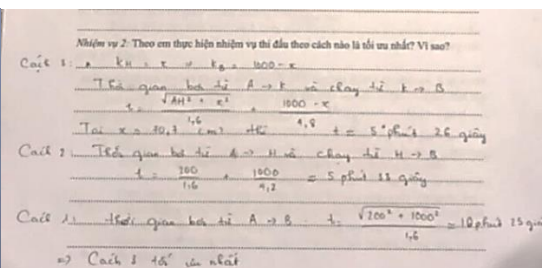 Nhiệm vụ 2: Theo em thực hiện nhiệm vụ thi đấu theo cách nào là tối ưu nhất? Vì sao?
Cách 3: KH = x => KB = 1000 - x
Thời gian bơi từ A → K và chạy từ K → B
t = √(AH² + x²)/1,6 + (1000 - x)/4,8
Tại x = 70,7 (m) thì t = 5 phút 26 giây
Cách 2: Thời gian bơi từ A → H và chạy từ H → B
t = 200/1,6 + 1000/4,8 = 5 phút 33 giây
Cách 1: thời gian bơi từ A → B t = √(200² + 1000²)/1,6 = 10 phút 25
=> Cách 3 tối ưu nhất